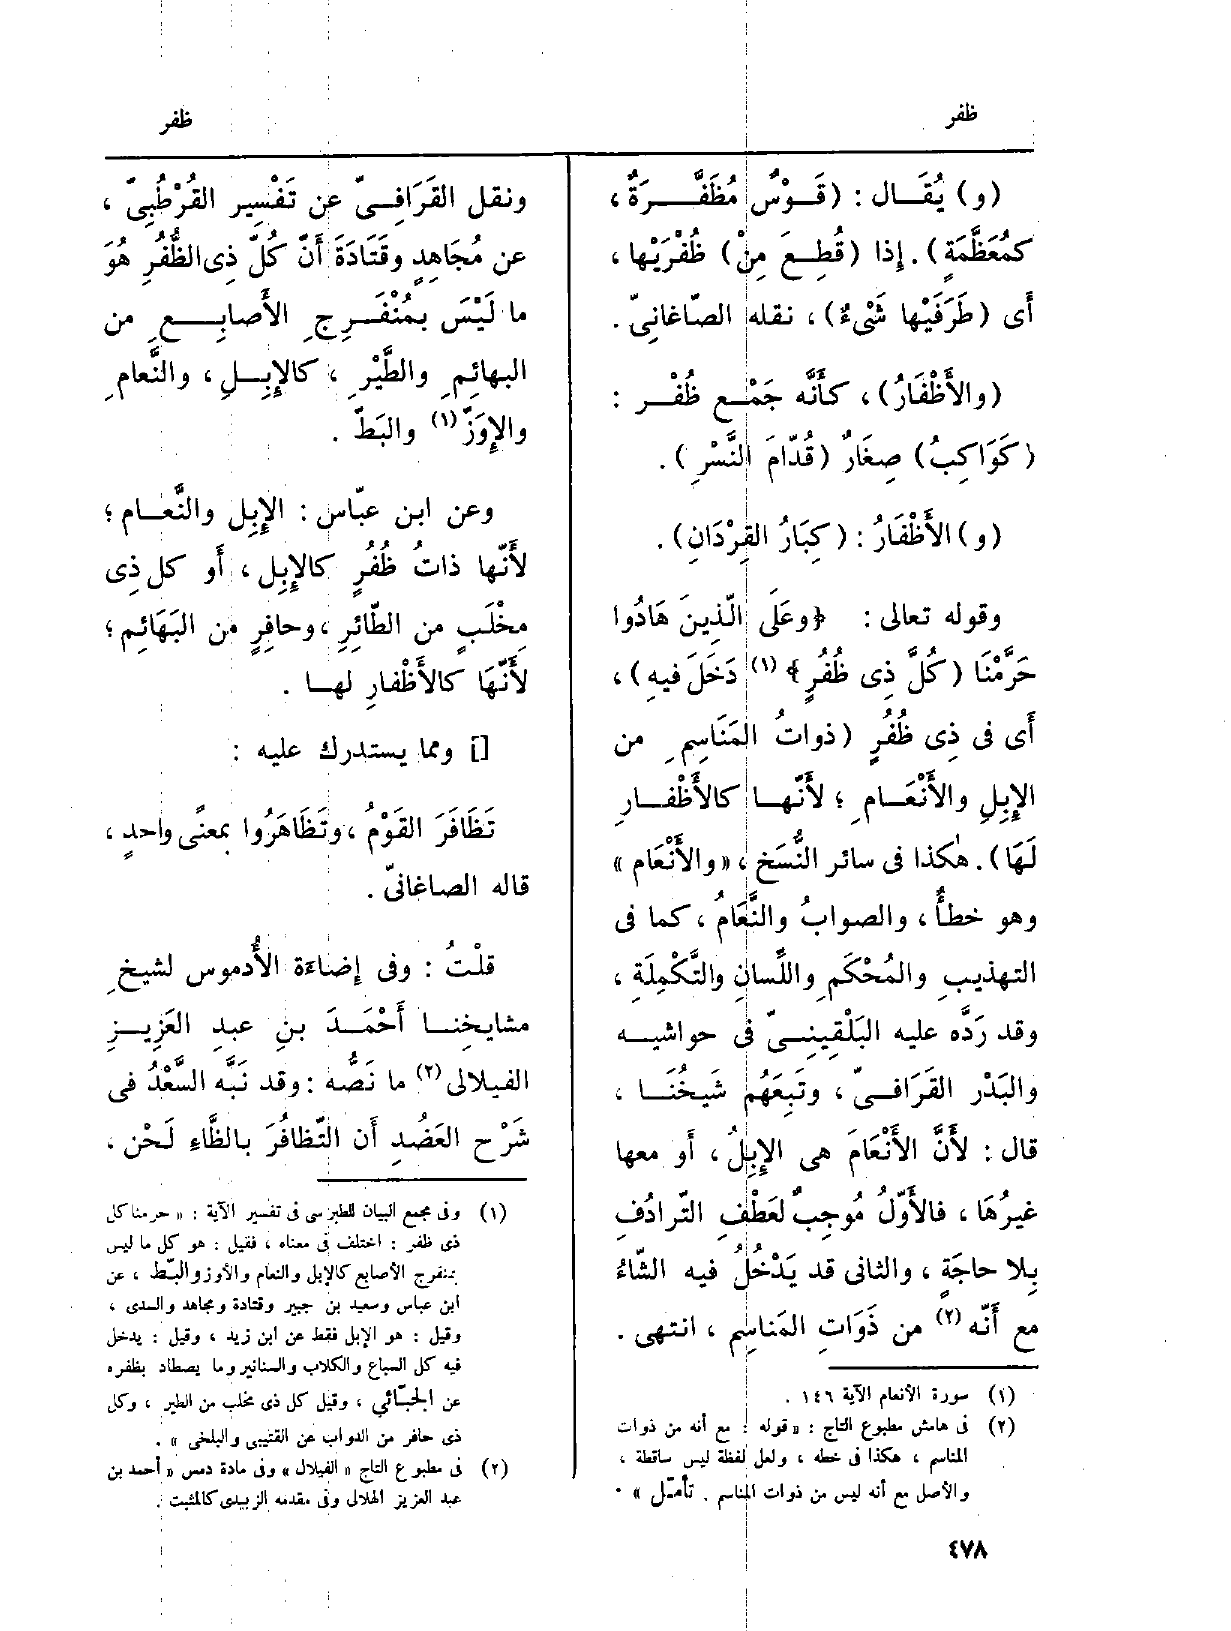 ظفر
ظفر
(و) يُقَــال : (قَــوْسٌ مُظَفَّــرَةٌ ،
كمُعَظَّمَةٍ). إذا (قُطِـعَ مِنْ) ظُفْرَيْها ،
أى (طَرَفَيْها شَىْءٌ) ، نقله الصّاغانِىّ .
(والأَظْفَارُ) ، كأَنَّه جَمْـع ظُفْـر :
(كَوَاكِبُ) صِغَارٌ (قُدّامَ النَّسْرِ ) .
(و) الأَظْفَارُ : (كِبَارُ القِرْدَانِ) .
وقوله تعالى : ﴿وعَلَى الَّذِينَ هَادُوا
حَرَّمْنَا (كُلَّ ذِى ظُفُرٍ﴾ (١) دَخَلَ فيهِ) ،
أى فى ذِى ظُفُرٍ (ذواتُ المَنَاسِمِ من
الإِبِلِ والأَنْعَـامِ ؛ لأَنّهـا كالأَظْفـارِ
لَهَا) . هٰكذا فى سائر النُّسَخِ ، «والأَنْعَام »
وهو خطأٌ ، والصوابُ والنَّعَامُ ، كما فى
التهذيبِ والمُحْكَمِ واللِّسانِ والتَّكْمِلَةِ ،
وقد رَدَّه عليه البَلْقِينـىّ فى حواشيـه
والبَدْر القَرَافـىّ ، وتَبِعَهُم شَيخُنَـا ،
قال : لأَنَّ الأَنْعَامَ هى الإِبِلُ ، أو معها
غيرُهَا ، فالأَوّلُ مُوجِبٌ لعَطْفِ التّرادُفِ
بِلا حاجَةٍ ، والثانى قد يَدْخُلُ فيه الشّاءُ
مع أَنّه (٢) من ذَوَاتِ المَناسِمِ ، انتهى .
(١) سورة الأنعام الآية ١٤٦ .
(٢) فى هامش مطبوع التاج : « قوله : مع أنه من ذوات
المناسم ، هكذا فى خطه ، ولعل لفظة ليس ساقطة ،
والأصل مع أنه ليس من ذوات المناسم . تأمّل » .
ونقل القَرَافِـىّ عن تَفْسِير القُرْطُبِىّ ،
عن مُجَاهِدٍ وقَتَادَةَ أَنّ كُلّ ذِى الظُّفُرِ هُوَ
ما لَيْسَ بمُنْفَـرِجِ الأَصابِـعِ من
البهائِمِ والطَّيْرِ ، كالإِبِـلِ ، والنَّعامِ
والإِوَزّ (١) والبَطّ .
وعن ابن عبّاس : الإِبِل والنَّعَـام ؛
لأَنّها ذاتُ ظُفُرٍ كالإِبِل ، أو كل ذِى
مِخْلَبٍ من الطّائِرِ ، وحافِرٍ من البَهَائِم ؛
لأَنَّهَا كالأَظْفارِ لهـا .
[] ومما يستدرك عليه :
تَظَافَرَ القَوْمُ ، وتَظَاهَرُوا بمعنًى واحدٍ ،
قاله الصاغانىّ .
قلْتُ : وفى إضاءَة الأُدموس لشيخِ
مشايخنـا أَحْمَـدَ بنِ عبدِ العَزِيـزِ
الفيلالى (٢) ما نَصُّه : وقد نَبَّه السَّعْدُ فى
شَرْح العَضُدِ أن التّظافُرَ بالظَّاءِ لَحْن ،
(١) وفى مجمع البيان للطبرسى فى تفسير الآية : « حرمنا كل
ذى ظفر : اختلف فى معناه ، فقيل : هو كل ما ليس
بمنفرج الأصابع كالإبل والنعام والأوز والبَّط ، عن
ابن عباس وسعيد بن جبير وقتادة ومجاهد والسدى ،
وقيل : هو الإبل فقط عن ابن زيد ، وقيل : يدخل
فيه كل السباع والكلاب والسنانير وما يصطاد بظفره
عن الجبّائي ، وقيل كل ذى مخلب من الطير ، وكل
ذى حافر من الدواب عن القتيبى والبلخى » .
(٢) فى مطبوع التاج « الفيلال » وفى مادة دمس « أحمد بن
عبد العزيز الهلالى وفى مقدمه الزبيدى كالمثبت .
٤٧٨